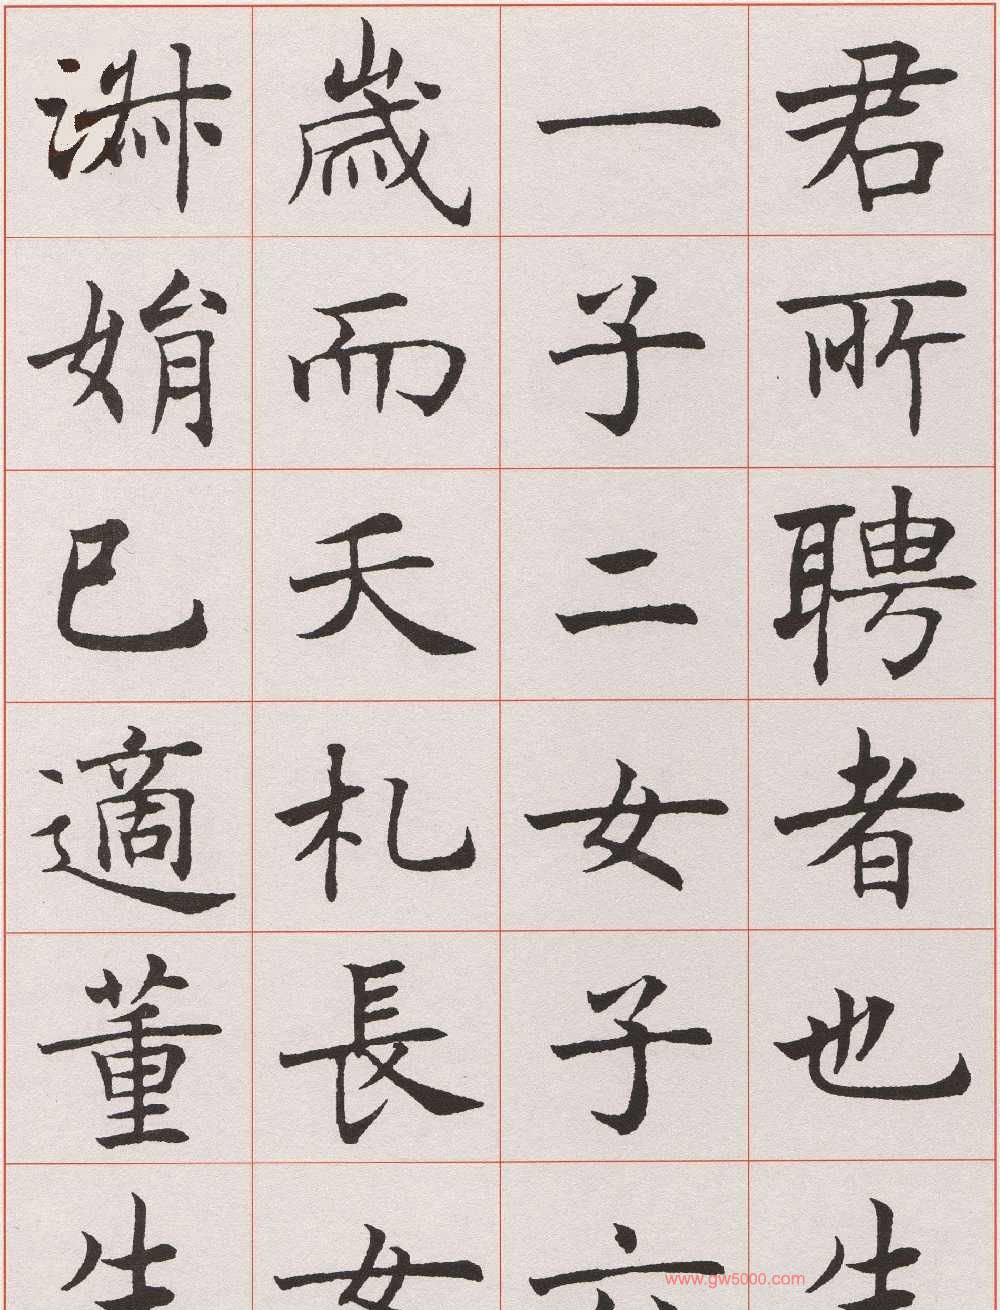 君所聘者也生
一子二女子六
歲而夭札長女
娟已適董生
www.gw5000.com